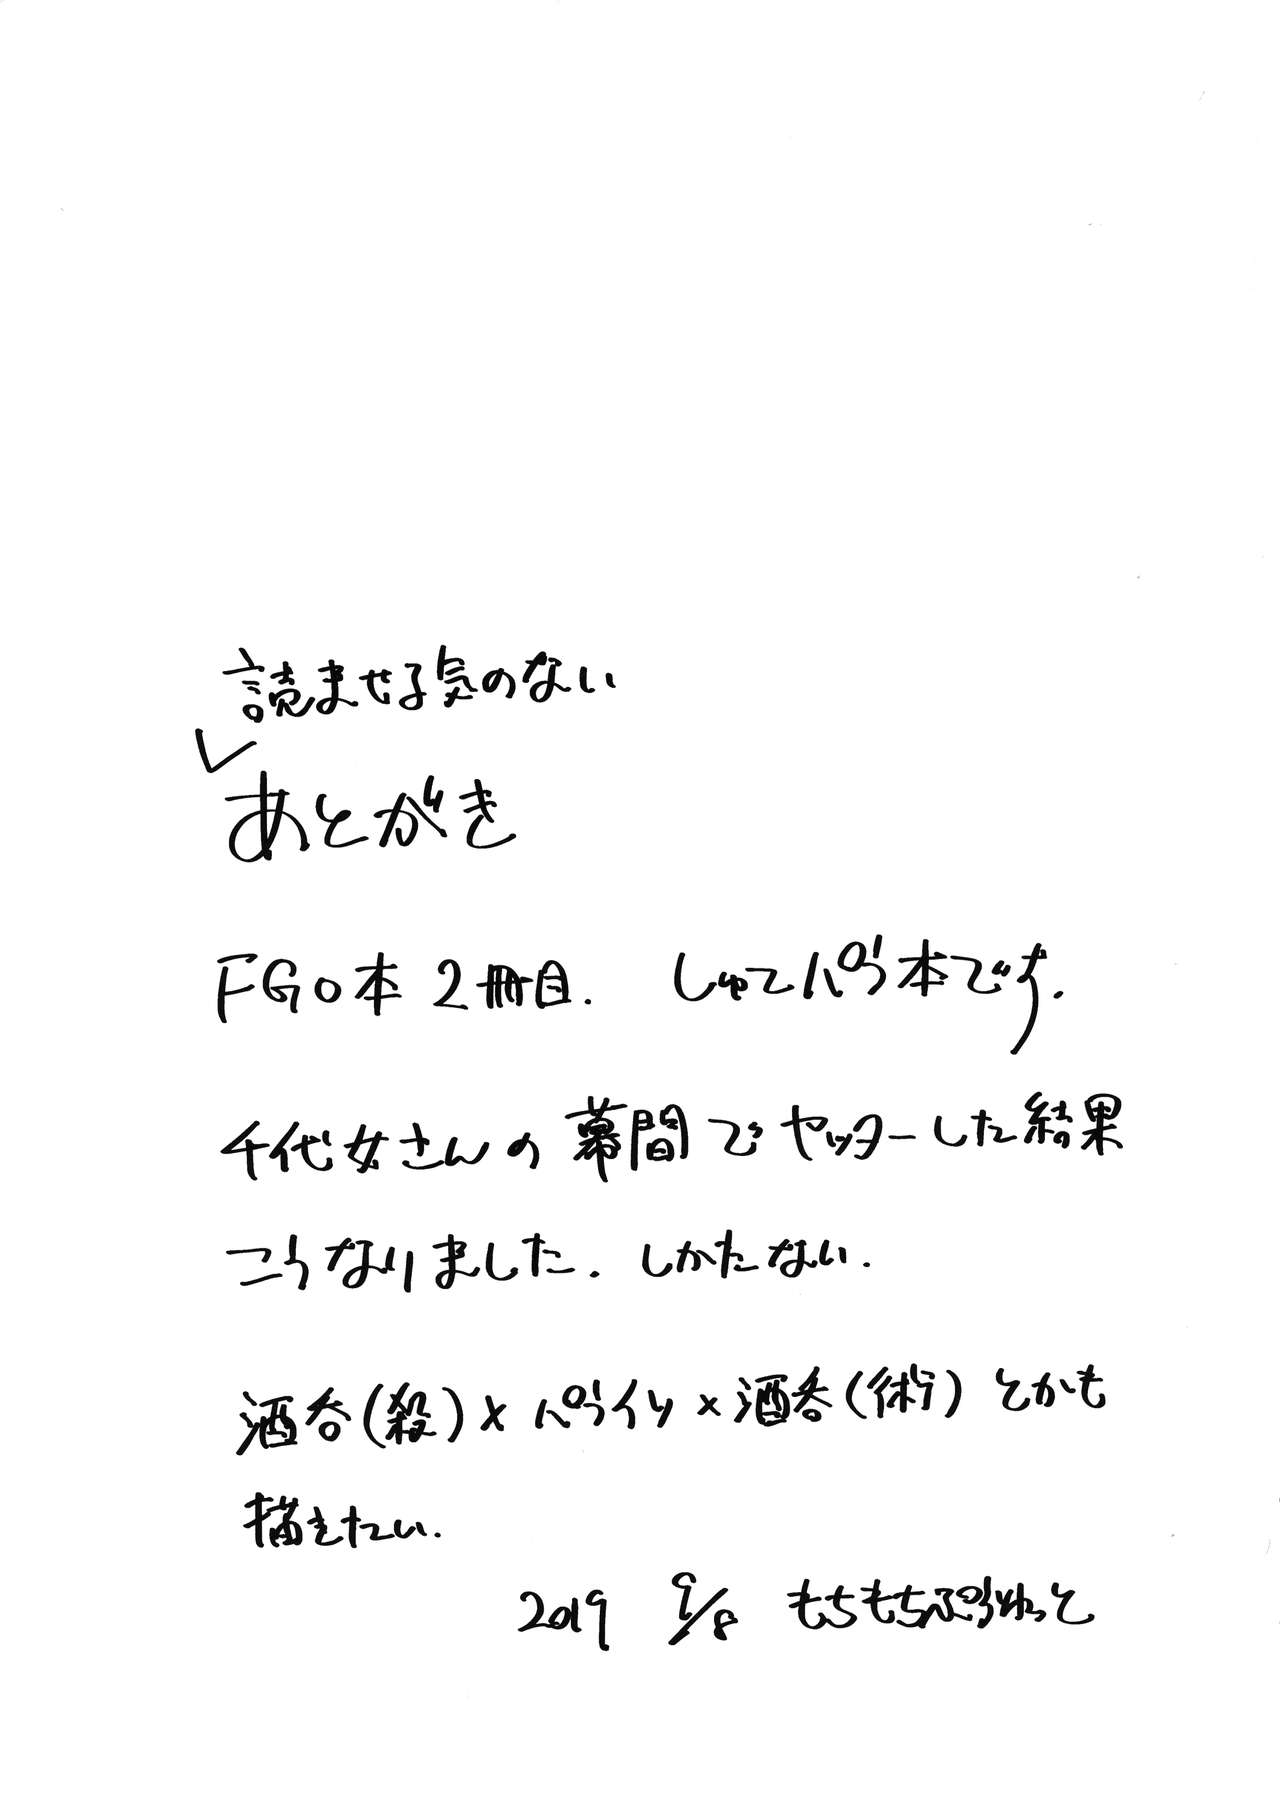 読ませる気のない
あとがき
FGO本 2冊目. しゅてパラ本です.
千代女さんの幕間でヤッターした結果
こうなりました. しかたない.
酒呑(殺)×パライソ×酒呑(術)とかも
描きたい.
2019 9/8 もちもちぷうれっと